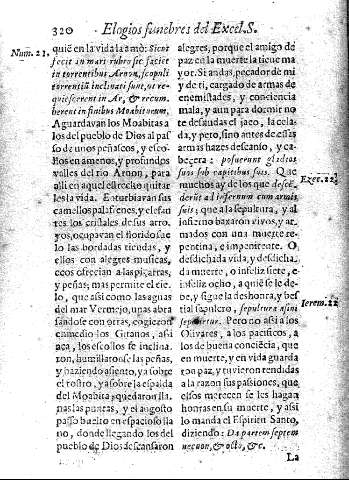 320 Elogios funebres del Excel. S.
Num. 21.
quiẽ en la vida la amò: Sicut
fecit in mari rubro sic faciet
in torrentibus Arnon, scopuli
torrentiũ inclinati sunt, ut re-
quiescerent in Ar, & recum-
berent in finibus Moabitarum,
Aguardavan los Moabitas a
los del pueblo de Dios al pas
so de unos peñascos, y esco-
llos en amenos, y profundos
valles del rio Arnon, para
alli en aquel estrecho quitar
les la vida. Enturbiavan sus
camellos passanes, y elefan
tes los cristales de sus arro
yos, ocupavan el florido sue
lo las bordadas tiendas, y
ellos con alegres musicas,
ecos ofrecian a las pizarras,
y peñas; mas permite el cie-
lo, que assi como las aguas
del mar Vermejo, unas abra
sandose con otras, cogierõ
en medio los Gitanos, assi
acà, los escollos se inclina-
ron, humillaronse las peñas,
y haziendo assiento, ya sobre
el rostro, ya sobre la espalda
del Moabita quedaron lla-
nas las puntas, y el angosto
passo hecho en espacioso lla
no, donde llegando los del
pueblo de Dios descansaron
alegres, porque el amigo de
paz en la muerte la tiene ma
yor. Si andas, pecador de mi
y de ti, cargado de armas de
enemistades, y conciencia
mala, y aun para dormir no
te desnudas el jaco, la cela-
da, y peto, sino antes de estas
armas hazes descanso, y ca-
beçera: posuerunt gladios
suos sub capitibus suis. Que
muchos ay de los que descẽ-
derũt ad infernum cum armis
suis; que a la sepultura, y al
infierno baxaron vivos, y ar
mados con una muerte re-
pentina, e impenitente. O,
desdichada vida, y desdicha-
da muerte, o infeliz siete, e
infeliz ocho, a quiẽ se le de-
be, y sigue la deshonra, y bes
tial sepulcro, sepultura asini
sepelietur. Pero no assi a los
Olivares, a los pacificos, a
los de buena conciẽcia, que
en muerte, y en vida guarda
ron paz, y tuvieron rendidas
a la razon sus passiones, que
ellos merecen se les hagan
honras en su muerte, y assi
lo manda el Espiritu Santo,
diziendo: Da partem septem
necnon, & octo, &c.
Ezec. 32.
Ierem. 22
La